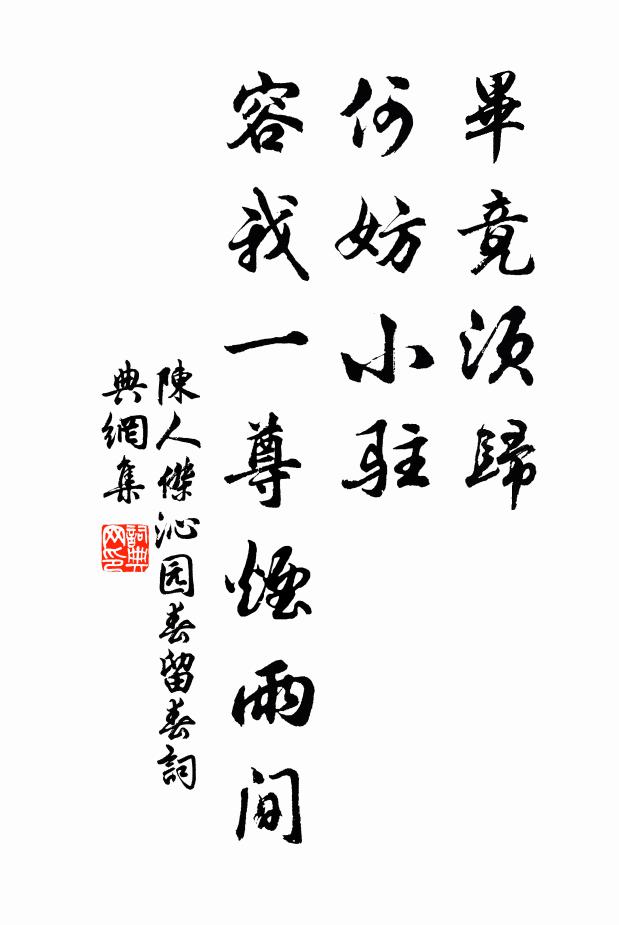 畢竟須歸
何妨小駐
容我一尊煙雨間
陳人傑沁园春留春詞
典網集
詞典网印